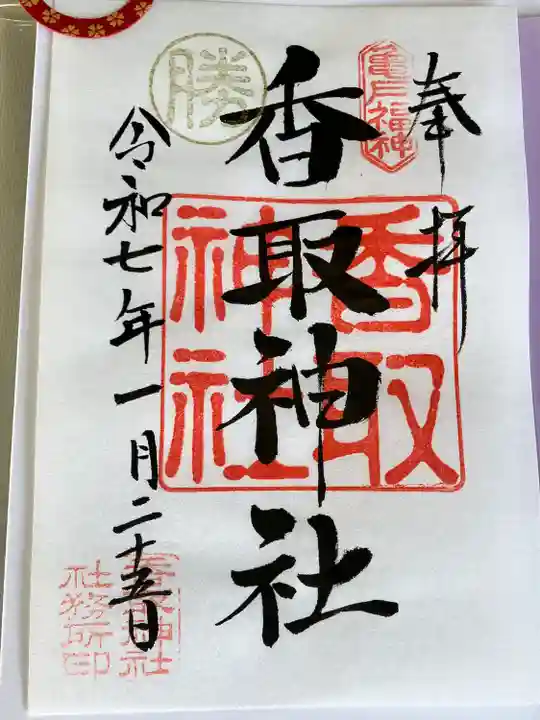 奉拝
亀戸福神
香取神社
香取神社
勝
令和七年一月二十五日
香取神社
社務所印